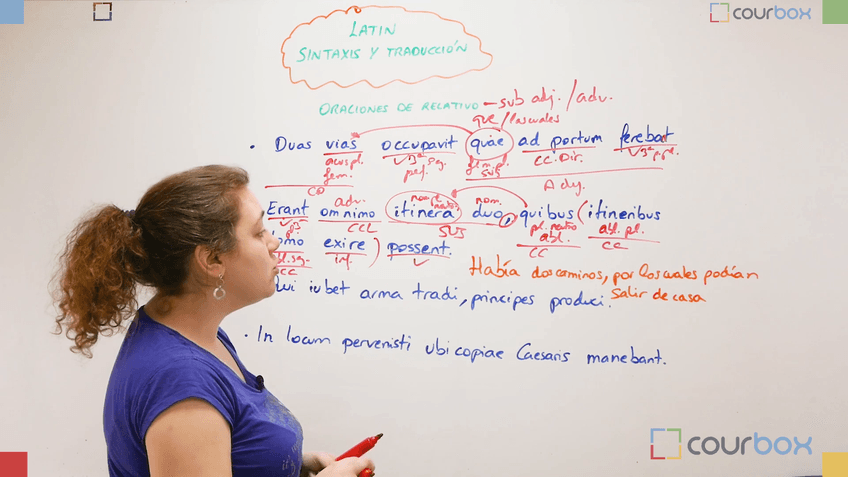 courbox
LATIN
SINTAXIS Y TRADUCCIÓN
ORACIONES DE RELATIVO – sub adj. / adv.
que / las cuales
• Duas vias occupavit quae ad portum ferebat
acus pl. fem. V 3ª sg. pef. fem. pl. sub CC. Dir. V 3ª p. pl.
CD Adj.
adv. nom. neutro nom.
Erant omnimo itinera duo, quibus (itineribus
V CCL SUJ pl. neutro abl. CC abl. pl. CC
domo exire) possent.
abl. sg. CC inf. V
Había dos caminos, por los cuales podían
salir de casa
Qui iubet arma tradi, principes produci.
• In locum pervenisti ubi copiae Caesaris manebant.
courbox